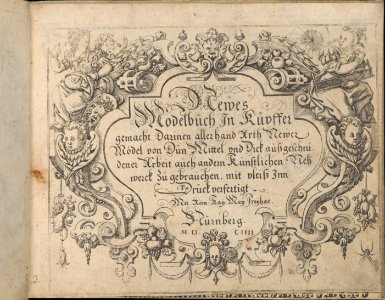 Newes
Modelbuch In Kupffer
gemacht Darinen allerhand Arth Newer
Model von Dun Mittel vnd Dick außgeschni
dener Arbeit auch andern Kunstlichen Neh
werck Zu gebrauchen. mit vleiß Inn
Druck verfertigt
Mit Röm. Kay. May. freyheit.
Nürnberg.
M D CIIII